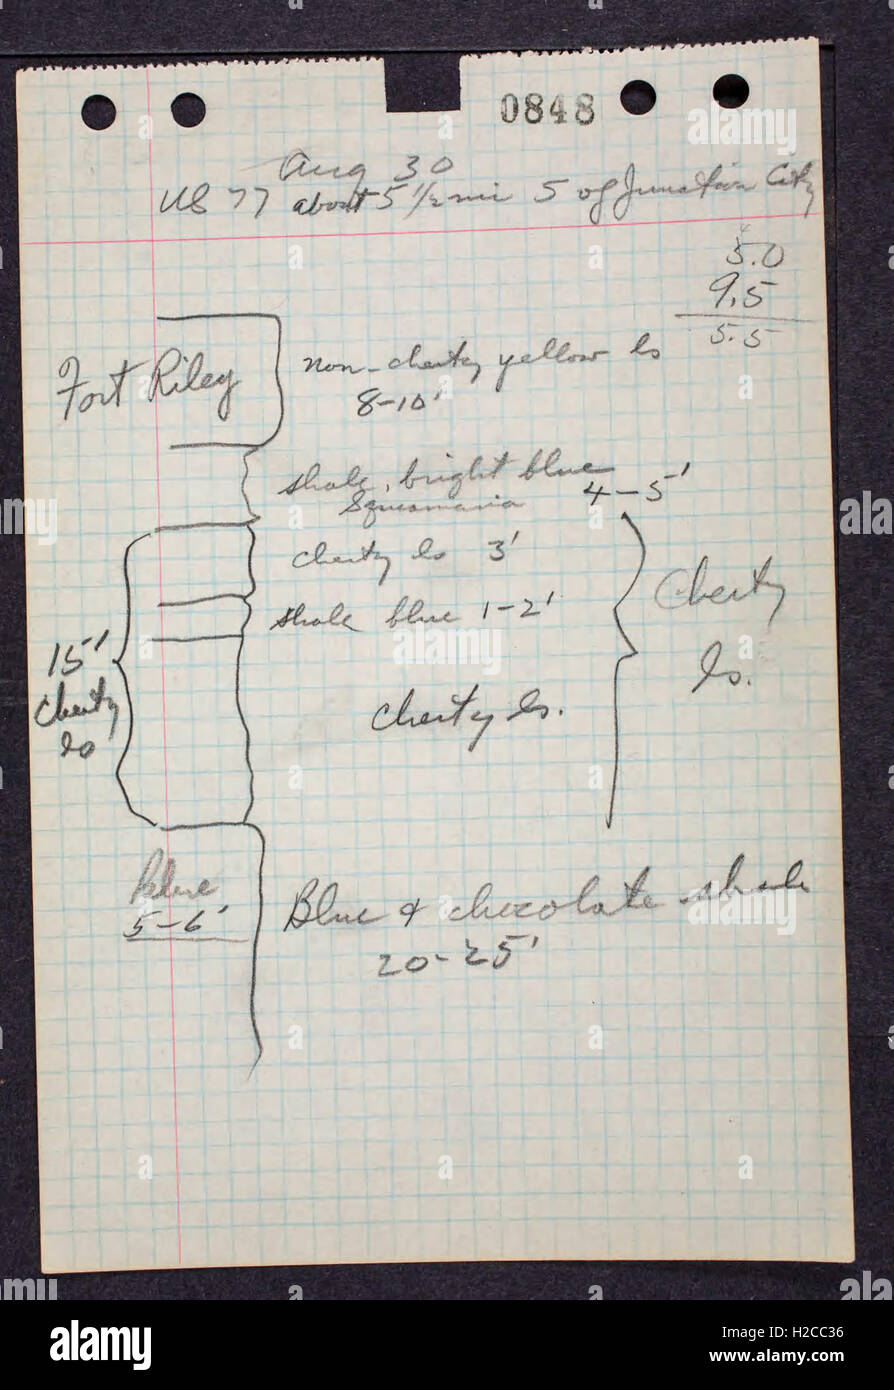 0848
Aug 30
US 77 about 5 1/2 mi S of Junction City
5.0
9.5
5.5
Fort Riley
non-cherty yellow ls
8-10'
shale, bright blue
4-5'
Squamaria
cherty ls 3'
shale blue 1-2'
Cherty
ls.
15'
Cherty
ls
Cherty ls.
blue
5-6'
Blue & chocolate shale
20-25'
alamy
Image ID: H2CC36
www.alamy.com